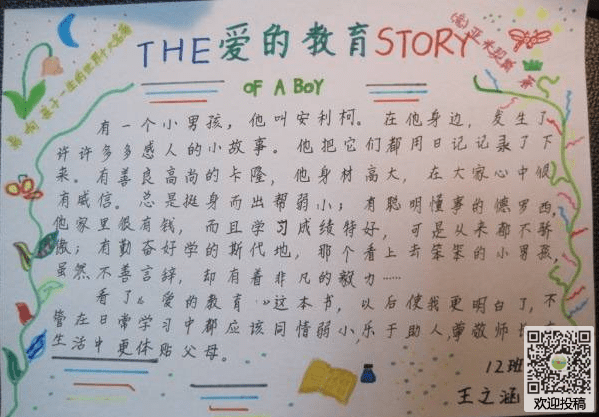 THE 爱的教育 STORY
OF A BOY
影响孩子一生的世界十大名著
(意)亚米契斯 著
有一个小男孩，他叫安利柯。在他身边，发生了
许许多多感人的小故事。他把它们都用日记记录了下
来。有善良高尚的卡隆，他身材高大，在大家心中很
有威信。总是挺身而出帮弱小；有聪明懂事的德罗西，
他家里很有钱，而且学习成绩特好，可是从来都不骄
傲；有勤奋好学的斯代地，那个看上去笨笨的小男孩，
虽然不善言辞，却有着非凡的毅力……
看了《爱的教育》这本书，以后使我更明白了，不
管在日常学习中都应该同情弱小,乐于助人,尊敬师长
生活中更体贴父母。
12班
王之涵
欢迎投稿